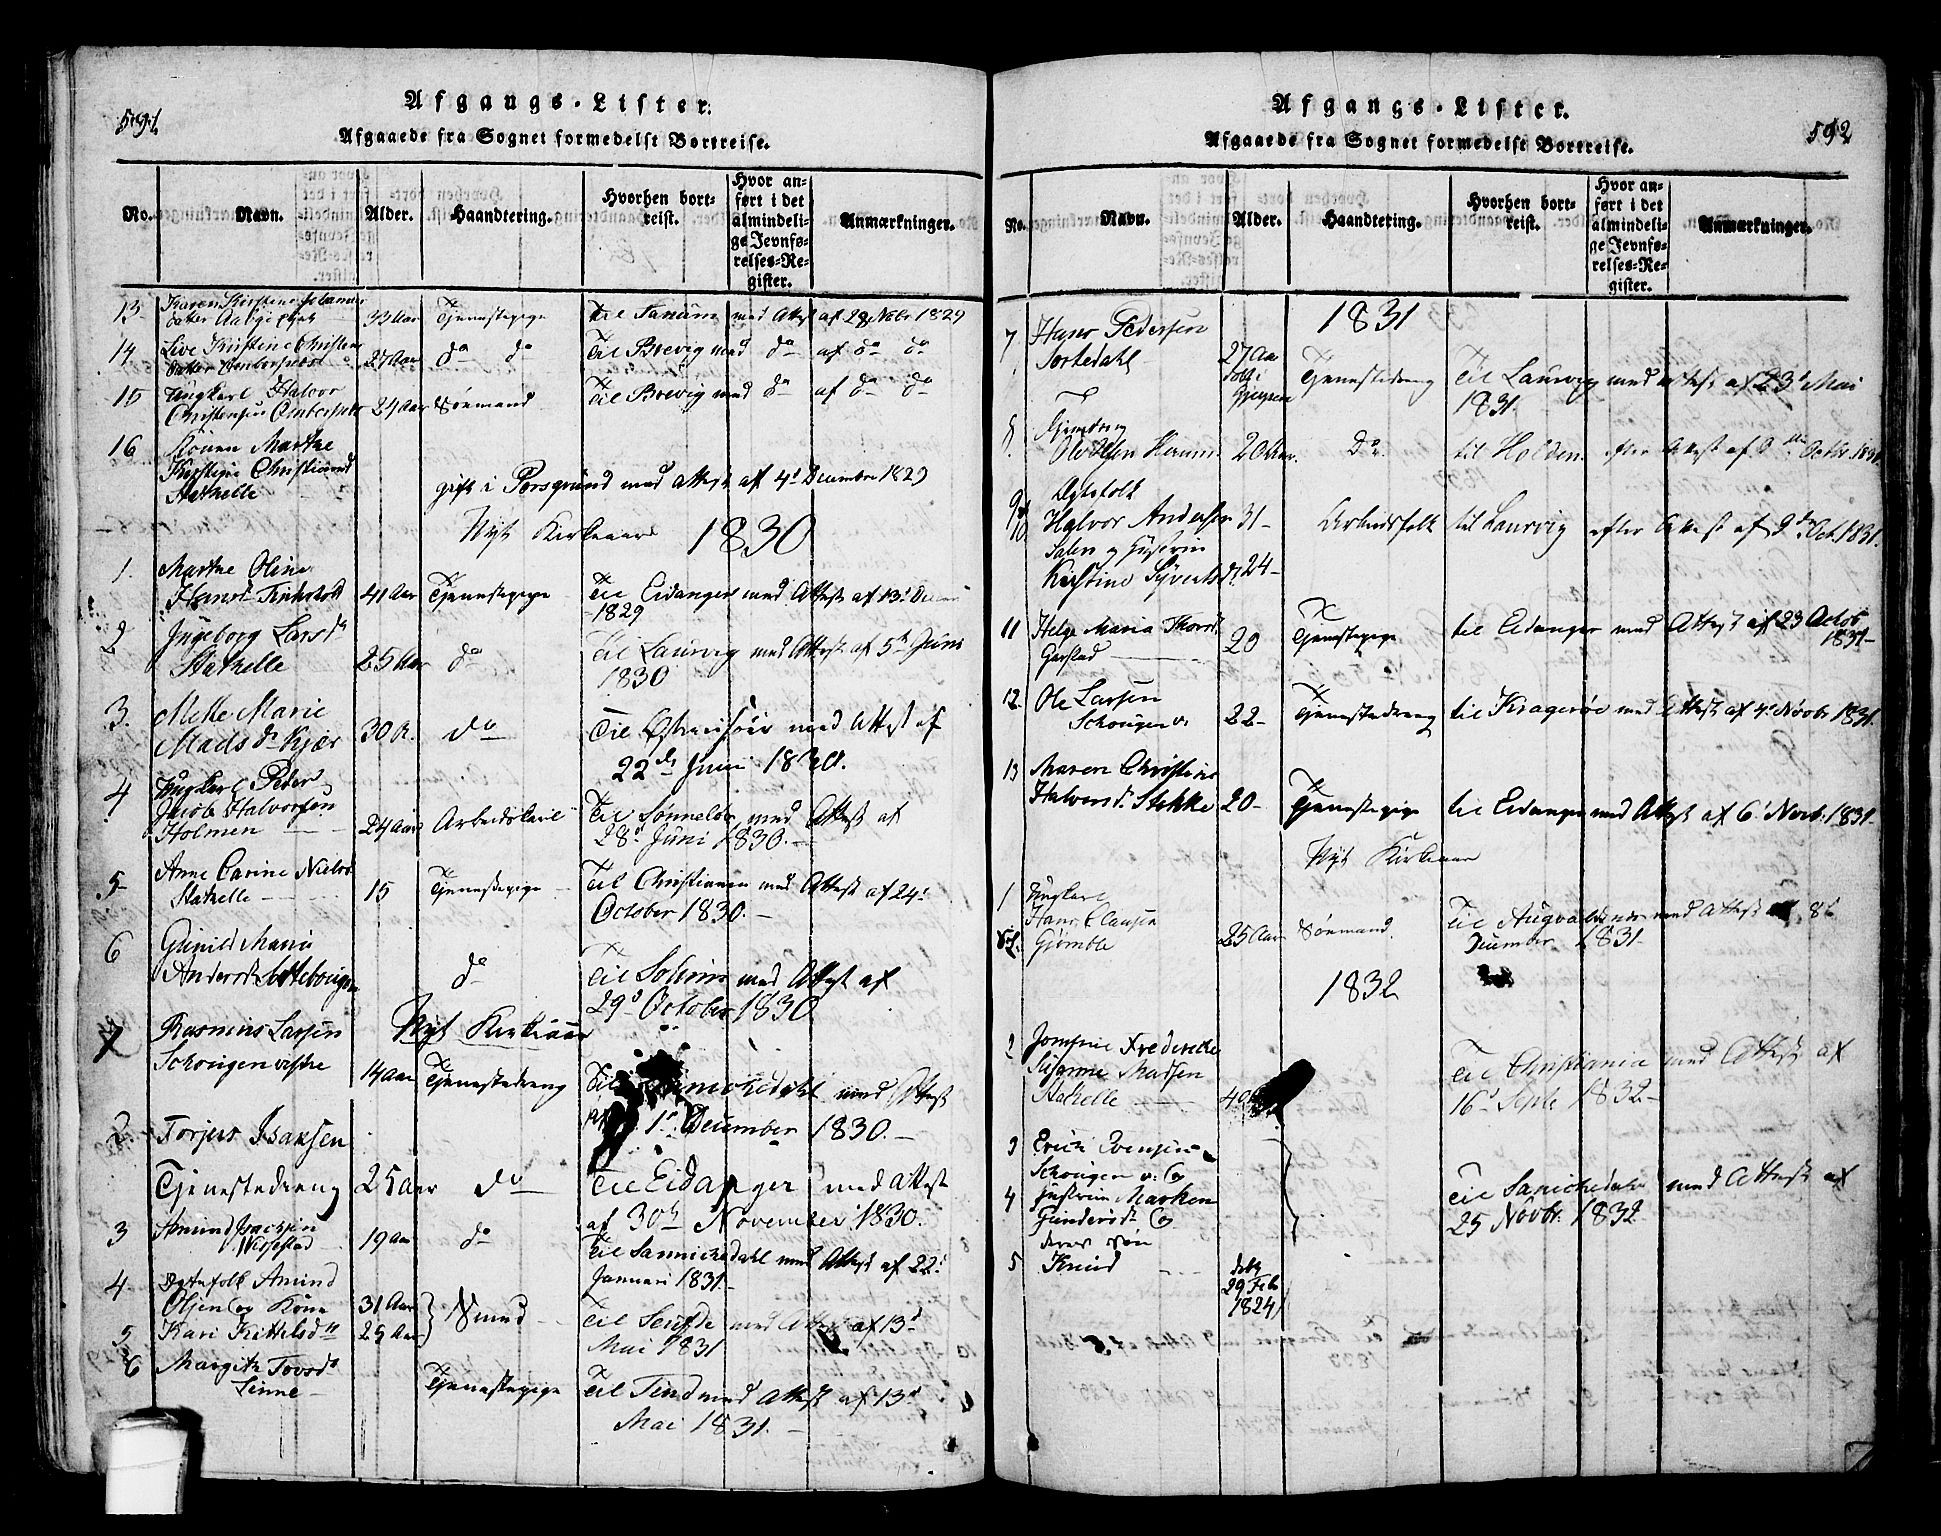 591
Afgangs-Lister.
Afgaaede fra Sognet formedelst Bortreise.
No.
Navn.
Alder.
Haandtering.
Hvorhen bortreist.
Hvor anført i det almindelige Jevnførelses-Register.
Anmærkninger.
13 Karen Kirstine Johannes
datter Aabye 33 Aar Tjenestepige til Sanum med Attest af 28 Novbr 1829
14 Live Kirstine Christens
datter 27 Aar do do Til Brevig med do af do do
15 Ungkarl Halvor
Christensen 24 Aar Sømand Til Brevig med do af do do
16 Marthe
Kirstine Christiansd
Stathelle gift i Porsgrund med Attest af 4d Decembre 1829
Nyt Kirkeaar 1830
1. Marthe Oline
Hansd 41 Aar Tjenestepige Til Eidanger med Attest af 13d Decem
1829
2 Ingeborg Larsdr
Stathelle 25 Aar do Til Laurvig med Attest af 5te Juni
1830
3. Mette Marie
Madsdr Kjær 30 A. do Til Østerrisøer med Attest af
22de Juni 1830.
4 Ungkarl Peder
Jacob Halvorsen
Holmen 24 Aar Arbeidskarl Til Sønneløv med Attest af
28d Juni 1830.
5 Anne Carine Nielsd
Stathelle 15 Tjenestepige Til Christiania med Attest af 24d
October 1830.
6 Gunild Maria
Andersdr do Til Solum med Attest af
29d October 1830
Nyt Kirkeaar
1 Rasmus Larsen
Schougen vestre 14 Aar Tjenestedreng Til med Attest
1s December 1830.
2 Torjus Isaksen
Tjenestedreng 25 Aar do Til Eidanger med Attest
af 30te November 1830.
3 Amund Isachsen
19 Aar do Til Sannickedahl med Attest af 22d
Januari 1831.
4 Ægtefolk Amund
Olsen og Kone 31 Aar
5 Kari Kittelsdtr 25 Aar Smed Til med Attest af 13d
Mai 1831
6 Margith Tovsdr
Linne Tjenestepige Til Tind med Attest af 13d
Mai 1831.
592
Afgangs-Lister.
Afgaaede fra Sognet formedelst Bortreise.
No.
Navn.
Alder.
Haandtering.
Hvorhen bortreist.
Hvor anført i det almindelige Jevnførelses-Register.
Anmærkninger.
1831
7 Hans Pedersen
Sortedahl 27 Aar Tjenestedreng Til Laurvig med Attest af 23d Mai
1831.
8.
Ole Olsen 20 Aar. Do til Holden efter Attest af Octbr. 1831
Ægtefolk
9 og 10 Halvor Andersen 31 Arbeidsfolk til Laurvig efter Attest af 9de Oct. 1831.
og Hustruen
Kirstine Syvertsdr. 24
11 Helge Maria Thorsd.
Garstad 20 Tjenestepige til Eidanger med Attest af 23 Octob
1831
12. Ole Larsen
Schougen v. 22 Tjenestedreng til Kragerøe med Attest af 4d Novbr 1831.
13 Maren Christine
Halvorsdr. Stokke 20 Tjenestepige til Eidanger med Attest af 6d Novb. 1831
Nyt Kirkeaar
1 Ungkarl
Hans Clausen
25 Aar Sømand Til Augvaldsnes med Attest af 8d
December 1831
1832
2 Jomfrue Frederikke
Susanne Madsen
Stathelle Til Christiania med Attest af
16d Septe 1832
3 Erich Evensen
Schougen v. og
4 Hustruen Marthen
Gundersdr og
deres Søn Til Sanickedahl med Attest af
25 Novbr. 1832
5 Knud
29 Feb
1824